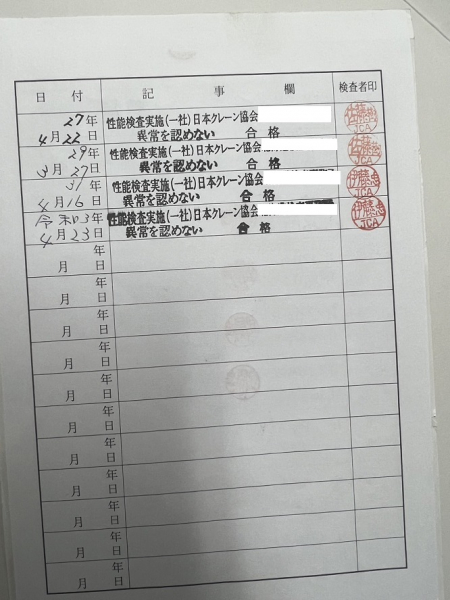 日 付 記 事 欄 検査者印
27年 性能検査実施(一社)日本クレーン協会
4月22日 異常を認めない 合格
佐藤
JCA
29年 性能検査実施(一社)日本クレーン協会
3月27日 異常を認めない 合格
佐藤
JCA
31年 性能検査実施(一社)日本クレーン協会
4月16日 異常を認めない 合格
伊藤
JCA
令和3年 性能検査実施(一社)日本クレーン協会
4月23日 異常を認めない 合格
伊藤
JCA
年
月 日
年
月 日
年
月 日
年
月 日
年
月 日
年
月 日
年
月 日
年
月 日
年
月 日
年
月 日
年
月 日